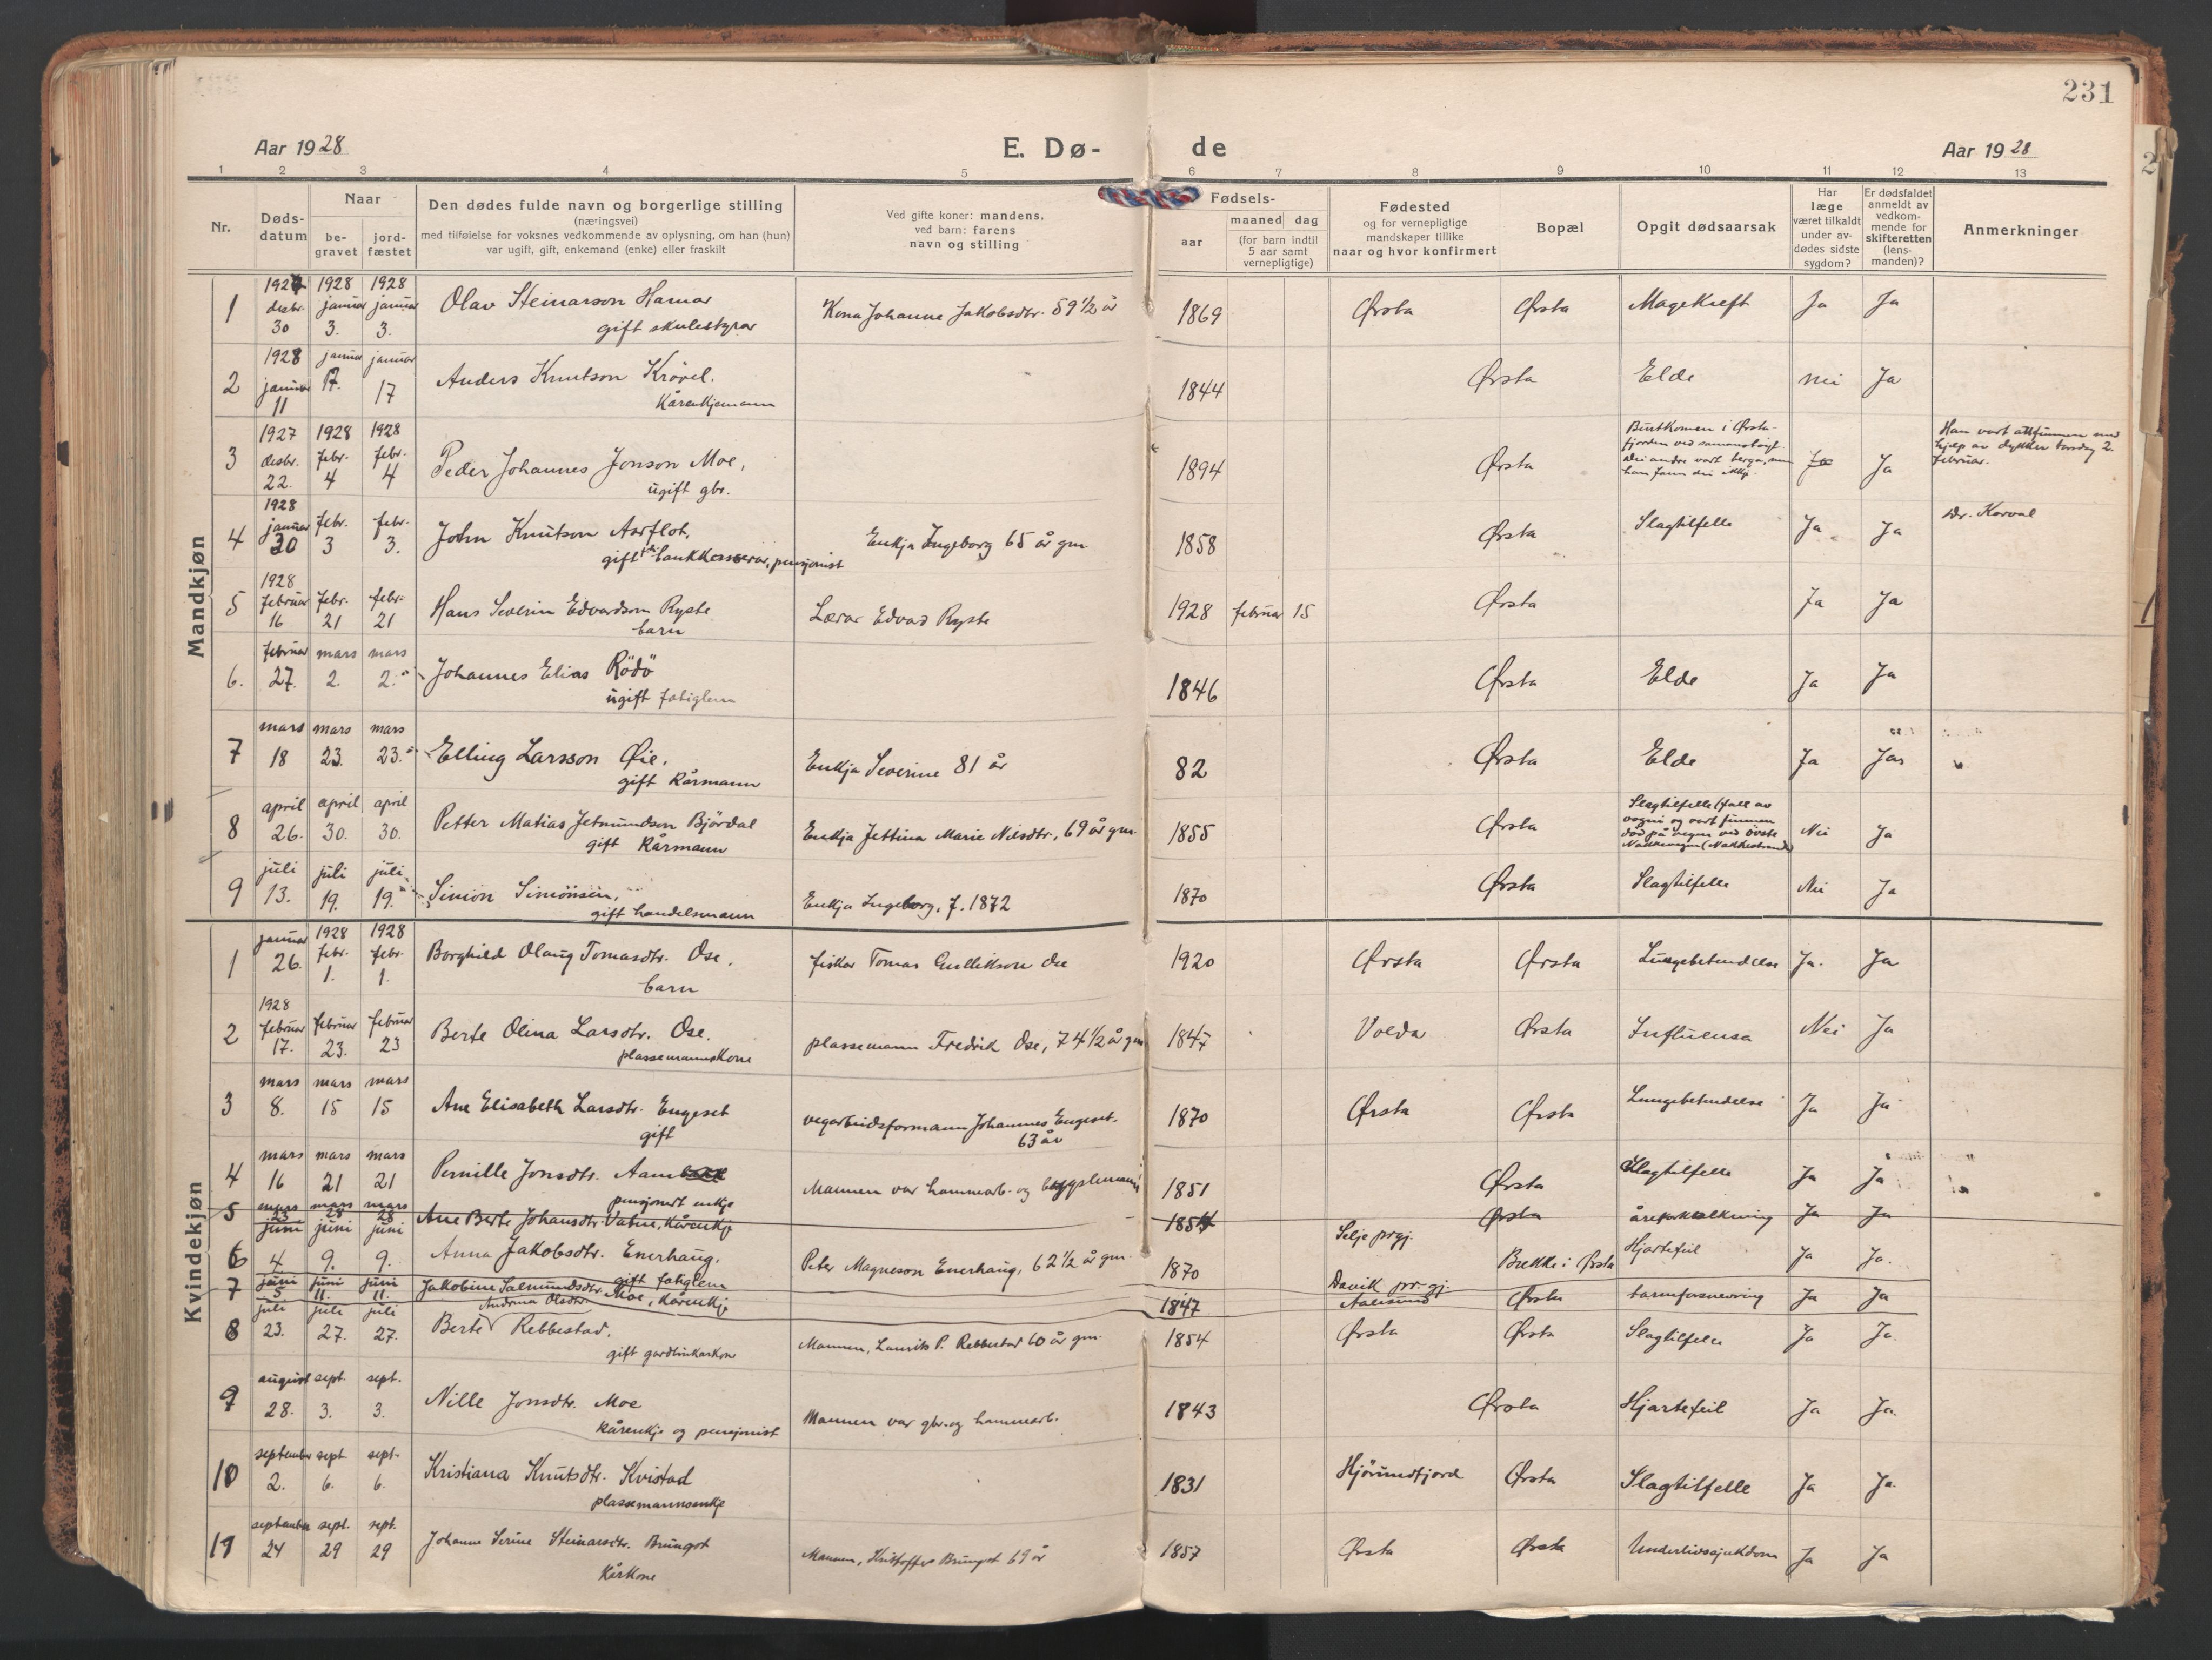 231
Aar 1928
E. Dø-
de
Aar 1928
1 2 3 4 5 6 7 8 9 10 11 12 13
Nr.
Døds-
datum
Naar
be-
gravet
jord-
fæstet
Den dødes fulde navn og borgerlige stilling
(næringsvei)
med tilføielse for voksnes vedkommende av oplysning, om han (hun)
var ugift, gift, enkemand (enke) eller fraskilt
Ved gifte koner: mandens,
ved barn: farens
navn og stilling
Fødsels-
aar
maaned dag
(for barn indtil
5 aar samt
vernepligtige)
Fødested
og for vernepligtige
mandskaper tillike
naar og hvor konfirmert
Bopæl
Opgit dødsaarsak
Har
læge
været tilkaldt
under av-
dødes sidste
sygdom?
Er dødsfaldet
anmeldt av
vedkom-
mende for
skifteretten
(lens-
manden)?
Anmerkninger
Mandkjøn
1 1927 desbr. 30 1928 januar 3. 1928 januar 3. Olav Steinarson Hamar
gift skulestyrar
Kona Johanne Jakobsdtr. 59 1/2 år 1869 Ørsta Ørsta Magekreft Ja Ja
2 1928 januar 11 januar 17. januar 17 Anders Knutson Krøvel.
Kårenkjemann
1844 Ørsta Elde nei Ja
3 1927 desbr. 22. 1928 febr. 4 1928 febr. 4 Peder Johannes Jonson Moe,
ugift gbr.
1894 Ørsta
Burtkomen i Ørsta-
fjorden ved samanstøyt.
Dei andre vart berga, men
han fann dei ikkje.
Ja Ja
Han vart attfunnen med
hjelp av dykker torsdag 2.
februar.
4 1928 januar 30 febr. 3 febr. 3. John Knutson Aarflot,
gift bankkasserar, pensjonist
Enkja Ingeborg 65 år gm 1858 Ørsta Slagtilfelle Ja Ja Dr. Korval
5 1928 februar 16 febr. 21 febr. 21 Hans Severin Edvardson Ryste
barn
Lærar Edvard Ryste 1928 februar 15 Ørsta Ja Ja
6. februar 27. mars 2. mars 2. Johannes Elias Rödö
ugift fatiglem
1846 Ørsta Elde Ja Ja
7 mars 18 mars 23. mars 23. Elling Larsson Øie,
gift kårmann
Enkja Severine 81 år 82 Ørsta Elde Ja Ja
8 april 26. april 30. april 30. Petter Matias Jetmundson Bjørdal
gift kårmann
Enkja Jettina Marie Nilsdtr, 69 år gm. 1855 Ørsta
Slagtilfelle (fall av
vogni og vart funnen
død på vegen ved øvste
Nei Ja
9 juli 13. juli 19. juli 19. Simon Simonsen,
gift handelsmann
Enkja Ingeborg, f. 1872 1870 Ørsta Slagtilfelle Nei Ja
Kvindekjøn
1 januar 26. 1928 febr. 1. 1928 febr. 1. Borghild Olaug Tomasdtr. Ose.
barn
fiskar Tomas Gulleikson Ose 1920 Ørsta Ørsta Lungebetendelse Ja. Ja
2 1928 februar 17. februar 23. februar 23 Berte Olina Larsdtr. Ose.
plassemannskone
plassemann Fredrik Ose, 74 1/2 år gm 1847 Volda Ørsta Influensa Nei Ja
3 mars 8. mars 15 mars 15 Ane Elisabeth Larsdtr. Engeset
gift
vegarbeidsformann Johannes Engeset.
63 år
1870 Ørsta Ørsta Lungebetendelse Ja Ja
4 mars 16 mars 21 mars 21 Pernille Jonsdtr. Aam
pensjonert enkje
Mannen var hammarb. og bygslemann 1851 Ørsta Slagtilfelle Ja Ja
5 mars 23 mars 28 mars 28 Ane Berte Johansdtr. Vatne, Kårenkje 1854 Ørsta åreforkalkning Ja Ja
6 juni 4 juni 9. juni 9. Anna Jakobsdtr. Enerhaug,
gift fatiglem
Peter Magneson Enerhaug, 62 1/2 år gm. 1870 Selje prgj. Brekke i Ørsta Hjartefeil Ja Ja.
7 juni 5 juni 11. juni 11. Jakobine Salmundsdtr. Moe, kårenkje 1847 Davik pr.gj.
Aalesund Ørsta tarmforsnevring Ja Ja
8 juli 23. juli 27. juli 27. Berte Andrina Olsdtr. Rebbestad.
gift gardbrukarkone
Mannen, Laurits P. Rebbestad 60 år gm. 1854 Ørsta Ørsta Slagtilfelle Ja Ja.
9 august 28. sept. 3. sept. 3. Nille Jonsdtr. Moe
kårenkje og pensjonist
Mannen var gbr. og hammarb. 1843 Ørsta Hjartefeil Ja Ja.
10 september 2. sept 6. sept. 6. Kristiana Knutsdtr. Kvistad
plassemannsenkje
1831 Hjörundfjord Ørsta Slagtilfelle Ja Ja.
11 september 24 sept. 29 sept. 29 Johanne Serine Steinarsdtr. Brungot
Kårkone
Mannen, Kristoffer Brungot 69 år 1857 Ørsta Ørsta Underlivssjukdom Ja Ja